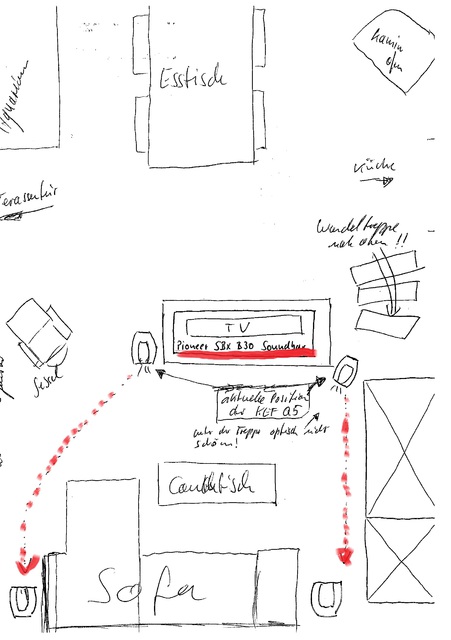 Esstisch
Kamin
ofen
Aquarium
Küche
Terassentür
Wendeltreppe
nach oben !!
TV
Pioneer SBX B30 Soundbar
Sessel
aktuelle Position
der KEF Q5
unter der Treppe optisch nicht
schön!
Couchtisch
Sofa